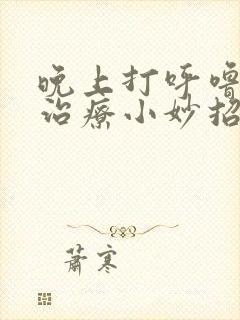 晚上打呼噜
治療小妙招
蕭寒